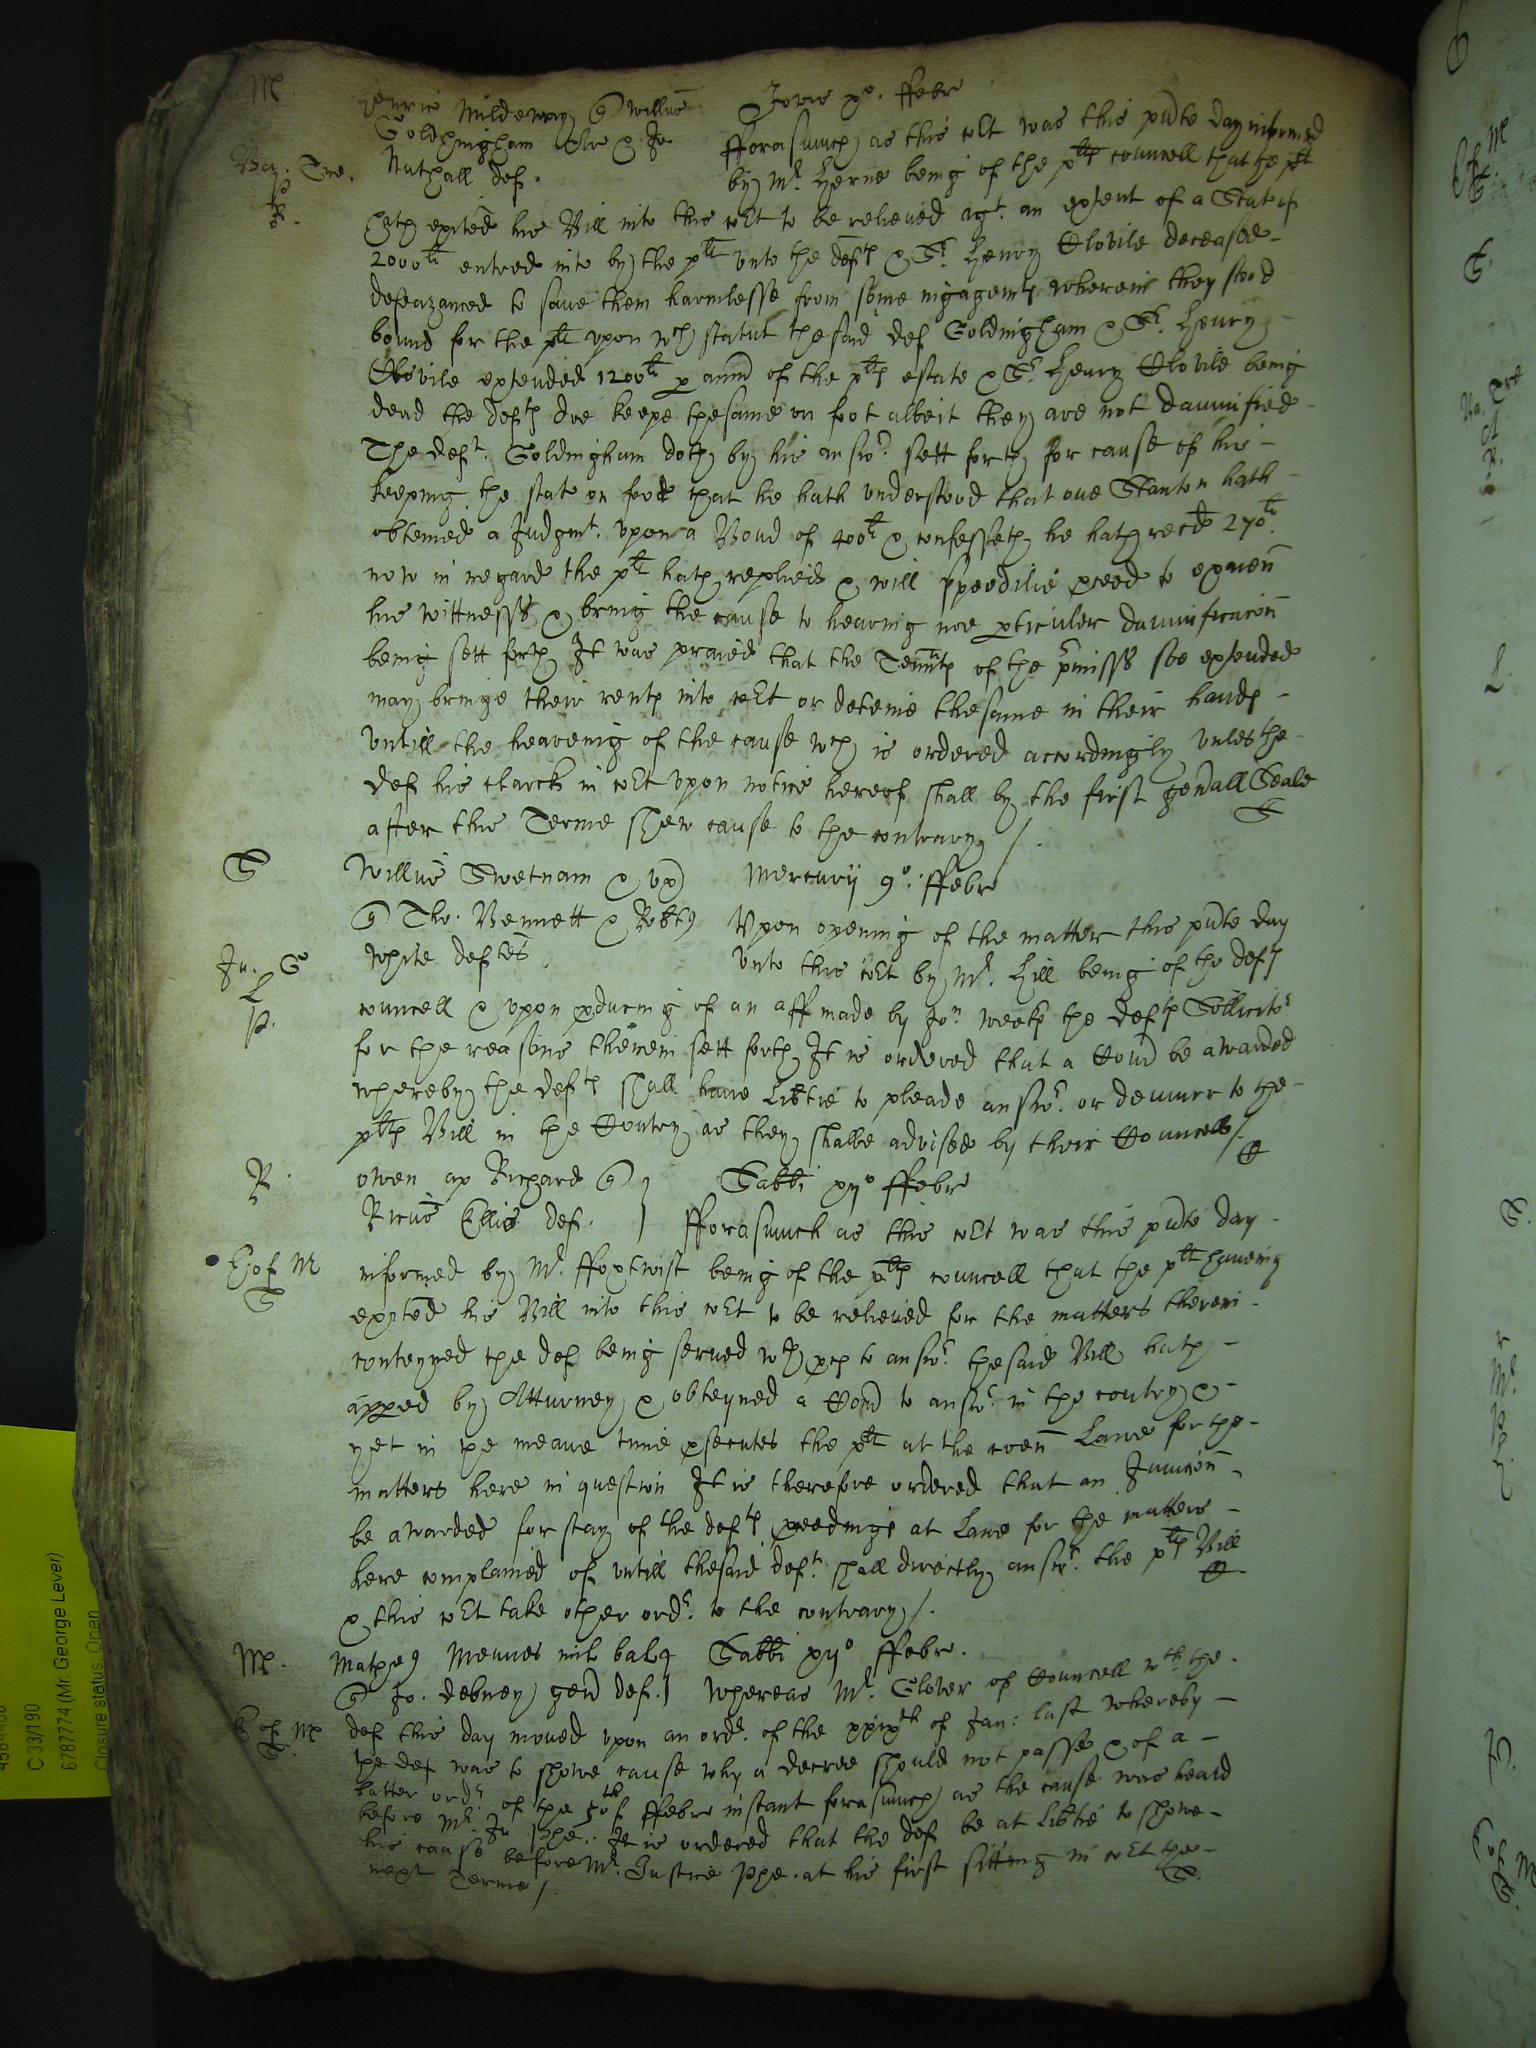 M
Henric Mildemay q Willus Jovis xo. ffebr
Goldingham Ar & Jo fforasmuch as this cort was this pnte day informed
Nuthall def. by Mr. Herne being of the pltes councell that the plt
hath exited his Bill into this cort to be releived agt. an extent of a Statut of
2000li entred into by the plt unto the deftes & Sr. Henry Clovile deceased
defeazanced to save them harmlesse from some ingagemtes wherein they stood
bound for the plt upon wch statut the said def Goldingham & Sr. Henry
Clovile extended 1200li p annu of the pltes estate & Sr. Henry Clovile being
dead the deftes doe keepe thesame on foot albeit they are not damnified
The deft. Goldingham doth by his answr. sett forth for cause of his
keeping the state on foot that he hath understood that one Stanton hath
obteined a Judgmt. upon a Bond of 400li & confesseth he hath recd 270li.
now in regard the plt hath replied & will speedilie pceed to exaien
his wittnesses & bring the cause to hearing noe pticuler damnificacon
being sett forth It was praied that the Tennntes of the pmisses soe extended
may bringe their rentes into cort or deteine thesame in their handes
untill the heareing of the cause wch is ordered accordingly unles the
def his clarck in cort upon notice hereof shall by the first genall Seale
after this Terme shew cause to the contrary /.
S Willus Swetnam & ux Mercurii 9o. ffebr
q Tho. Bennett & Robtq Upon opening of the matter this pnte day
White deftes unto this cort by Mr. Hill being of the deftes
Ju. S
L
P.
councell & upon pducing of an aff made by Jon Weekes the deftes Sollicitor
for the reasons therein sett forth It is ordered that a Comd be awarded
whereby the deftes shall have Libtie to pleade answr. or demurr to the
pltes Bill in the Contry as they shalbe advised by their Councell /.
R. Owen ap Richard q Sabbi xiio ffebr
Ricus Ellis def. fforasmuch as this cort was this pnte day
informed by Mr. ffoxtwist being of the pltes councell that the plt haveing
exited his Bill into this cort to be releived for the matters therein
conteyned the def being served wth pces to answr. the said Bill hath
apped by Atturney & obteyned a Comd to answr. in the contry &
yet in the meane time psecutes the plt at the coen Lawe for the
matters here in question It is therefore ordered that an Junccon
be awarded for stay of the deftes pceedinges at Lawe for the matters
here complained of untill thesaid deft. shall directly answr. the pltes Bill
& this cort take other ordr. to the contrary /.
M. Matheq Mennes mil balq Sabbi xiio ffebr.
q Jo. Debney gen def. Whereas Mr. Glover of Councell wth the
def this day moved upon an ordr. of the xxixth of Jan: last whereby
the def was to shewe cause why a decree should not passe & of a
latter ordr. of the 10th of ffebr instant forasmuch as the cause was heard
before Mr. Ju Phe.: It is ordered that the def be at Libtie to shewe
his cause before Mr. Justice Phe. at his first sitting in cort the
next Terme /.
C 33/190
6787774 (Mr. George Lever)
Closure status: Open